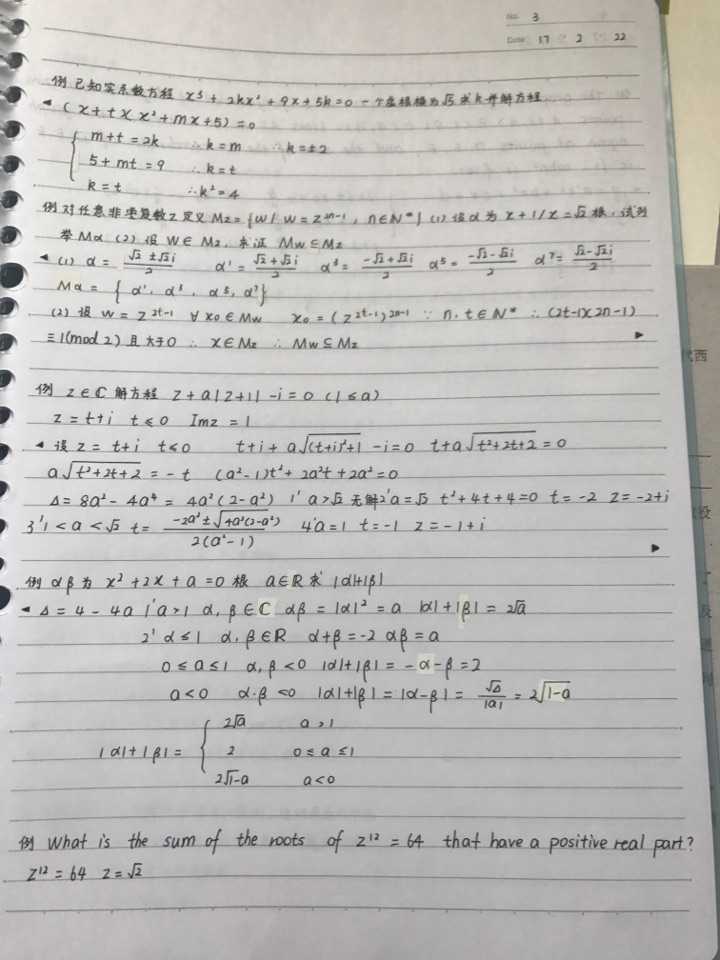 No. 3
Date 17 2 22
例 已知实系数方程 x³ + 2kx² + 9x + 5k = 0 一个虚根模为√5 求k并解方程
◂ (x+t)(x²+mx+5)=0
{ m+t = 2k ∴ k = m ∴ k = ±2
5 + mt = 9 ∴ k = t
k = t ∴ k² = 4
例 对任意非零复数z 定义 Mz = {w| w = z²ⁿ⁻¹, n∈N*} (1) 设α为 x + 1/x = √2 根, 试列
举Mα (2) 设 W∈Mz, 求证 Mw⊆Mz
◂ (1) α = (√2 ± √2i)/2 α¹ = (√2+√2i)/2 α³ = (-√2+√2i)/2 α⁵ = (-√2-√2i)/2 α⁷ = (√2-√2i)/2
Mα = { α¹, α³, α⁵, α⁷}
(2) 设 w = z²ᵗ⁻¹ ∀x₀∈Mw x₀ = (z²ᵗ⁻¹)²ⁿ⁻¹ ∵ n, t∈N* ∴ (2t-1)(2n-1)
≡1(mod 2) 且大于0 ∴ x∈Mz ∴ Mw⊆Mz ▸
例 z∈C 解方程 z + a|z+1| - i = 0 (1≤a)
z = t+i t≤0 Imz = 1
◂ 设 z = t+i t≤0 t+i + a√((t+1)²+1) - i = 0 t+a√(t²+2t+2) = 0
a√(t²+2t+2) = -t (a²-1)t² + 2a²t + 2a² = 0
Δ = 8a² - 4a⁴ = 4a²(2-a²) 1' a>√2 无解 2' a=√2 t²+4t+4=0 t = -2 z = -2+i
3' 1<a<√2 t = (-2a² ± √(4a²(2-a²)))/(2(a²-1)) 4' a=1 t=-1 z = -1+i ▸
例 αβ为 x²+2x+a=0 根 a∈R 求 |α|+|β|
◂ Δ = 4 - 4a 1' a>1 α, β∈C αβ = |α|² = a |α|+|β| = 2√a
2' α≤1 α, β∈R α+β = -2 αβ = a
0≤a≤1 α, β<0 |α|+|β| = -α-β = 2
a<0 α·β<0 |α|+|β| = |α-β| = √Δ/|a| = 2√(1-a)
|α|+|β| = { 2√a a>1
2 0≤a≤1
2√(1-a) a<0
例 What is the sum of the roots of z¹² = 64 that have a positive real part?
z¹² = 64 z = √2